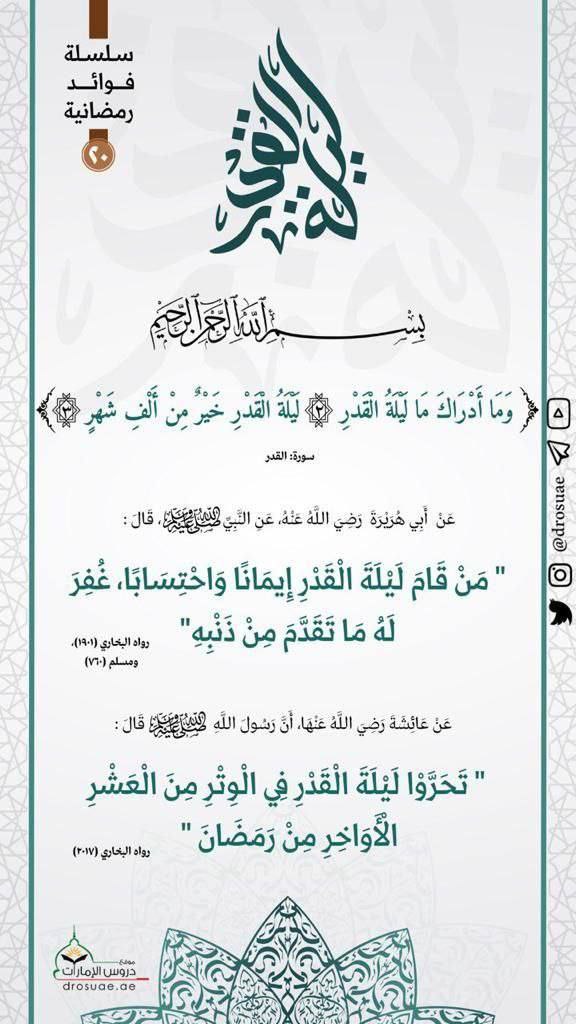 سلسلة
فـوائـد
رمضانية
٢٠
ليلة القدر
بِسْمِ اللَّهِ الرَّحْمَنِ الرَّحِيمِ
وَمَا أَدْرَاكَ مَا لَيْلَةُ الْقَدْرِ ٢ لَيْلَةُ الْقَدْرِ خَيْرٌ مِنْ أَلْفِ شَهْرٍ ٣
سورة: القدر
عَنْ أَبِي هُرَيْرَةَ رَضِيَ اللَّهُ عَنْهُ، عَنِ النَّبِيِّ ﷺ، قَالَ :
" مَنْ قَامَ لَيْلَةَ الْقَدْرِ إِيمَانًا وَاحْتِسَابًا، غُفِرَ
لَهُ مَا تَقَدَّمَ مِنْ ذَنْبِهِ"
رواه البخاري (١٩٠١)،
ومسلم (٧٦٠)
عَنْ عَائِشَةَ رَضِيَ اللَّهُ عَنْهَا، أَنَّ رَسُولَ اللَّهِ ﷺ قَالَ :
" تَحَرَّوْا لَيْلَةَ الْقَدْرِ فِي الْوِتْرِ مِنَ الْعَشْرِ
الْأَوَاخِرِ مِنْ رَمَضَانَ "
رواه البخاري (٢٠١٧)
@drosuae
موقع
دروس الإمارات
drosuae.ae